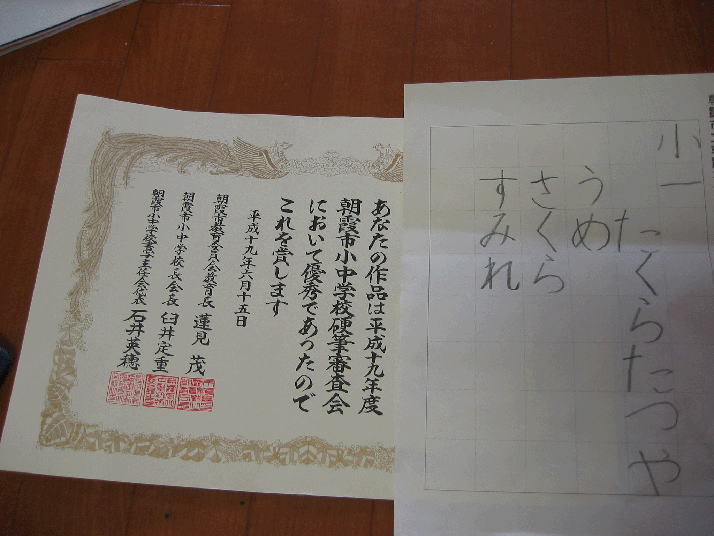 小一
たくらたつや
うめ
さくら
すみれ
あなたの作品は平成十九年度
朝霞市小中学校硬筆審査会
において優秀であったので
これを賞します
平成十九年六月十五日
朝霞市教育委員会教育長 蓮見 茂
朝霞市小中学校長会長 臼井定重
朝霞市小中学校書写主任会代表 石井英穂